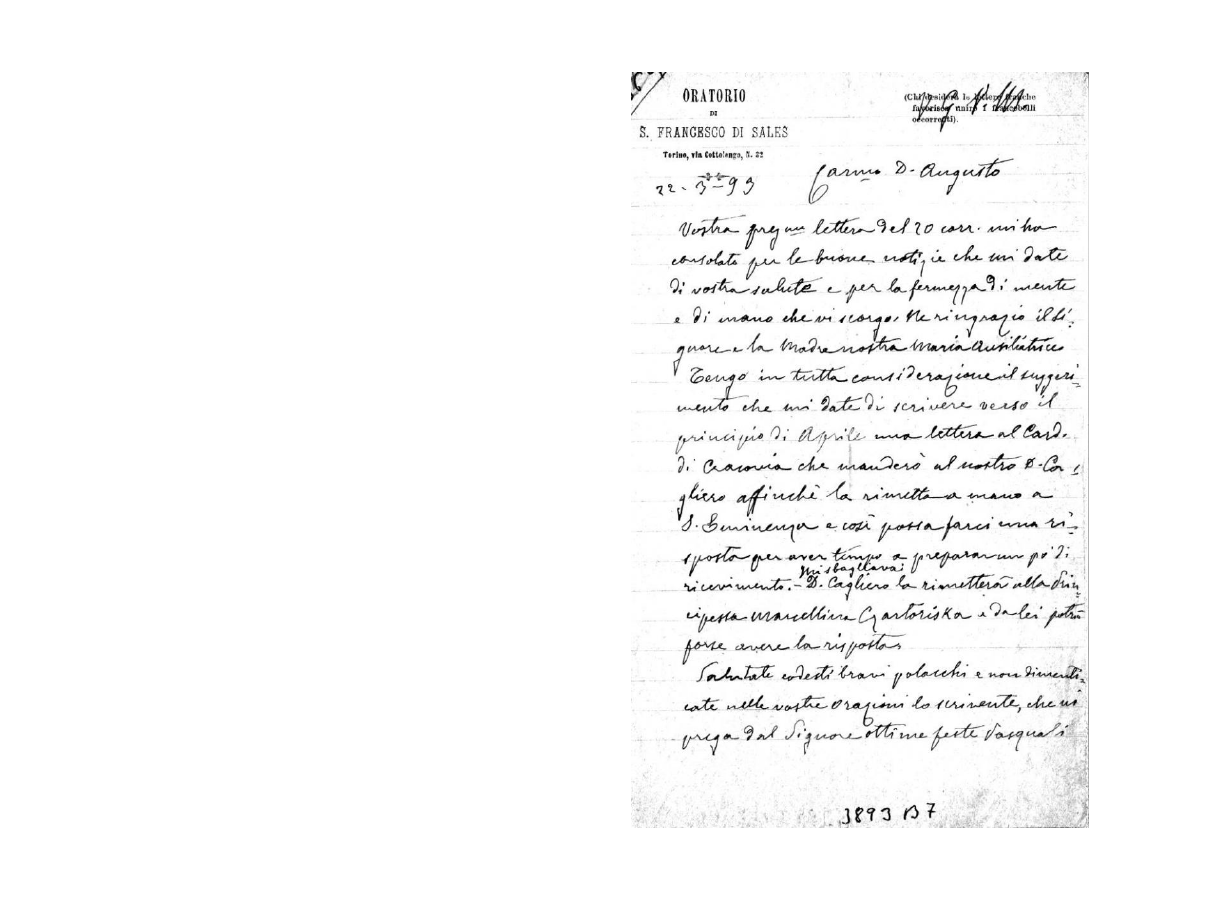 ORATORIO
DI
S. FRANCESCO DI SALES
Torino, via Cottolengo, N. 32
(Chi desidera le lettere franche
favorisca unire i francobolli
occorrenti).
22-3-93
Carmo D. Augusto
Vostra pregma lettera del 20 corr. mi ha
consolato per le buone notizie che mi date
di vostra salute e per la fermezza di mente
e di mano che vi scorgo. Ne ringrazio il Si-
gnore e la Madre nostra Maria Ausiliatrice
Tengo in tutta considerazione il suggeri-
mento che mi date di scrivere verso il
principio di Aprile una lettera al Card.
di Cracovia che manderò al nostro D. Ca-
gliero affinchè la rimetta a mano a
S. Eminenza e così possa farci una ri-
sposta per aver tempo a preparar un po' di
mi sbagliava:
ricevimento. - D. Cagliero la rimetterà alla Prin-
cipessa Marcellina Czartoriska e da lei potrà
forse avere la risposta.
Salutate codesti bravi polacchi e non dimenti-
cate nelle vostre orazioni lo scrivente, che vi
prega dal Signore ottime feste Pasquali
3893 B7